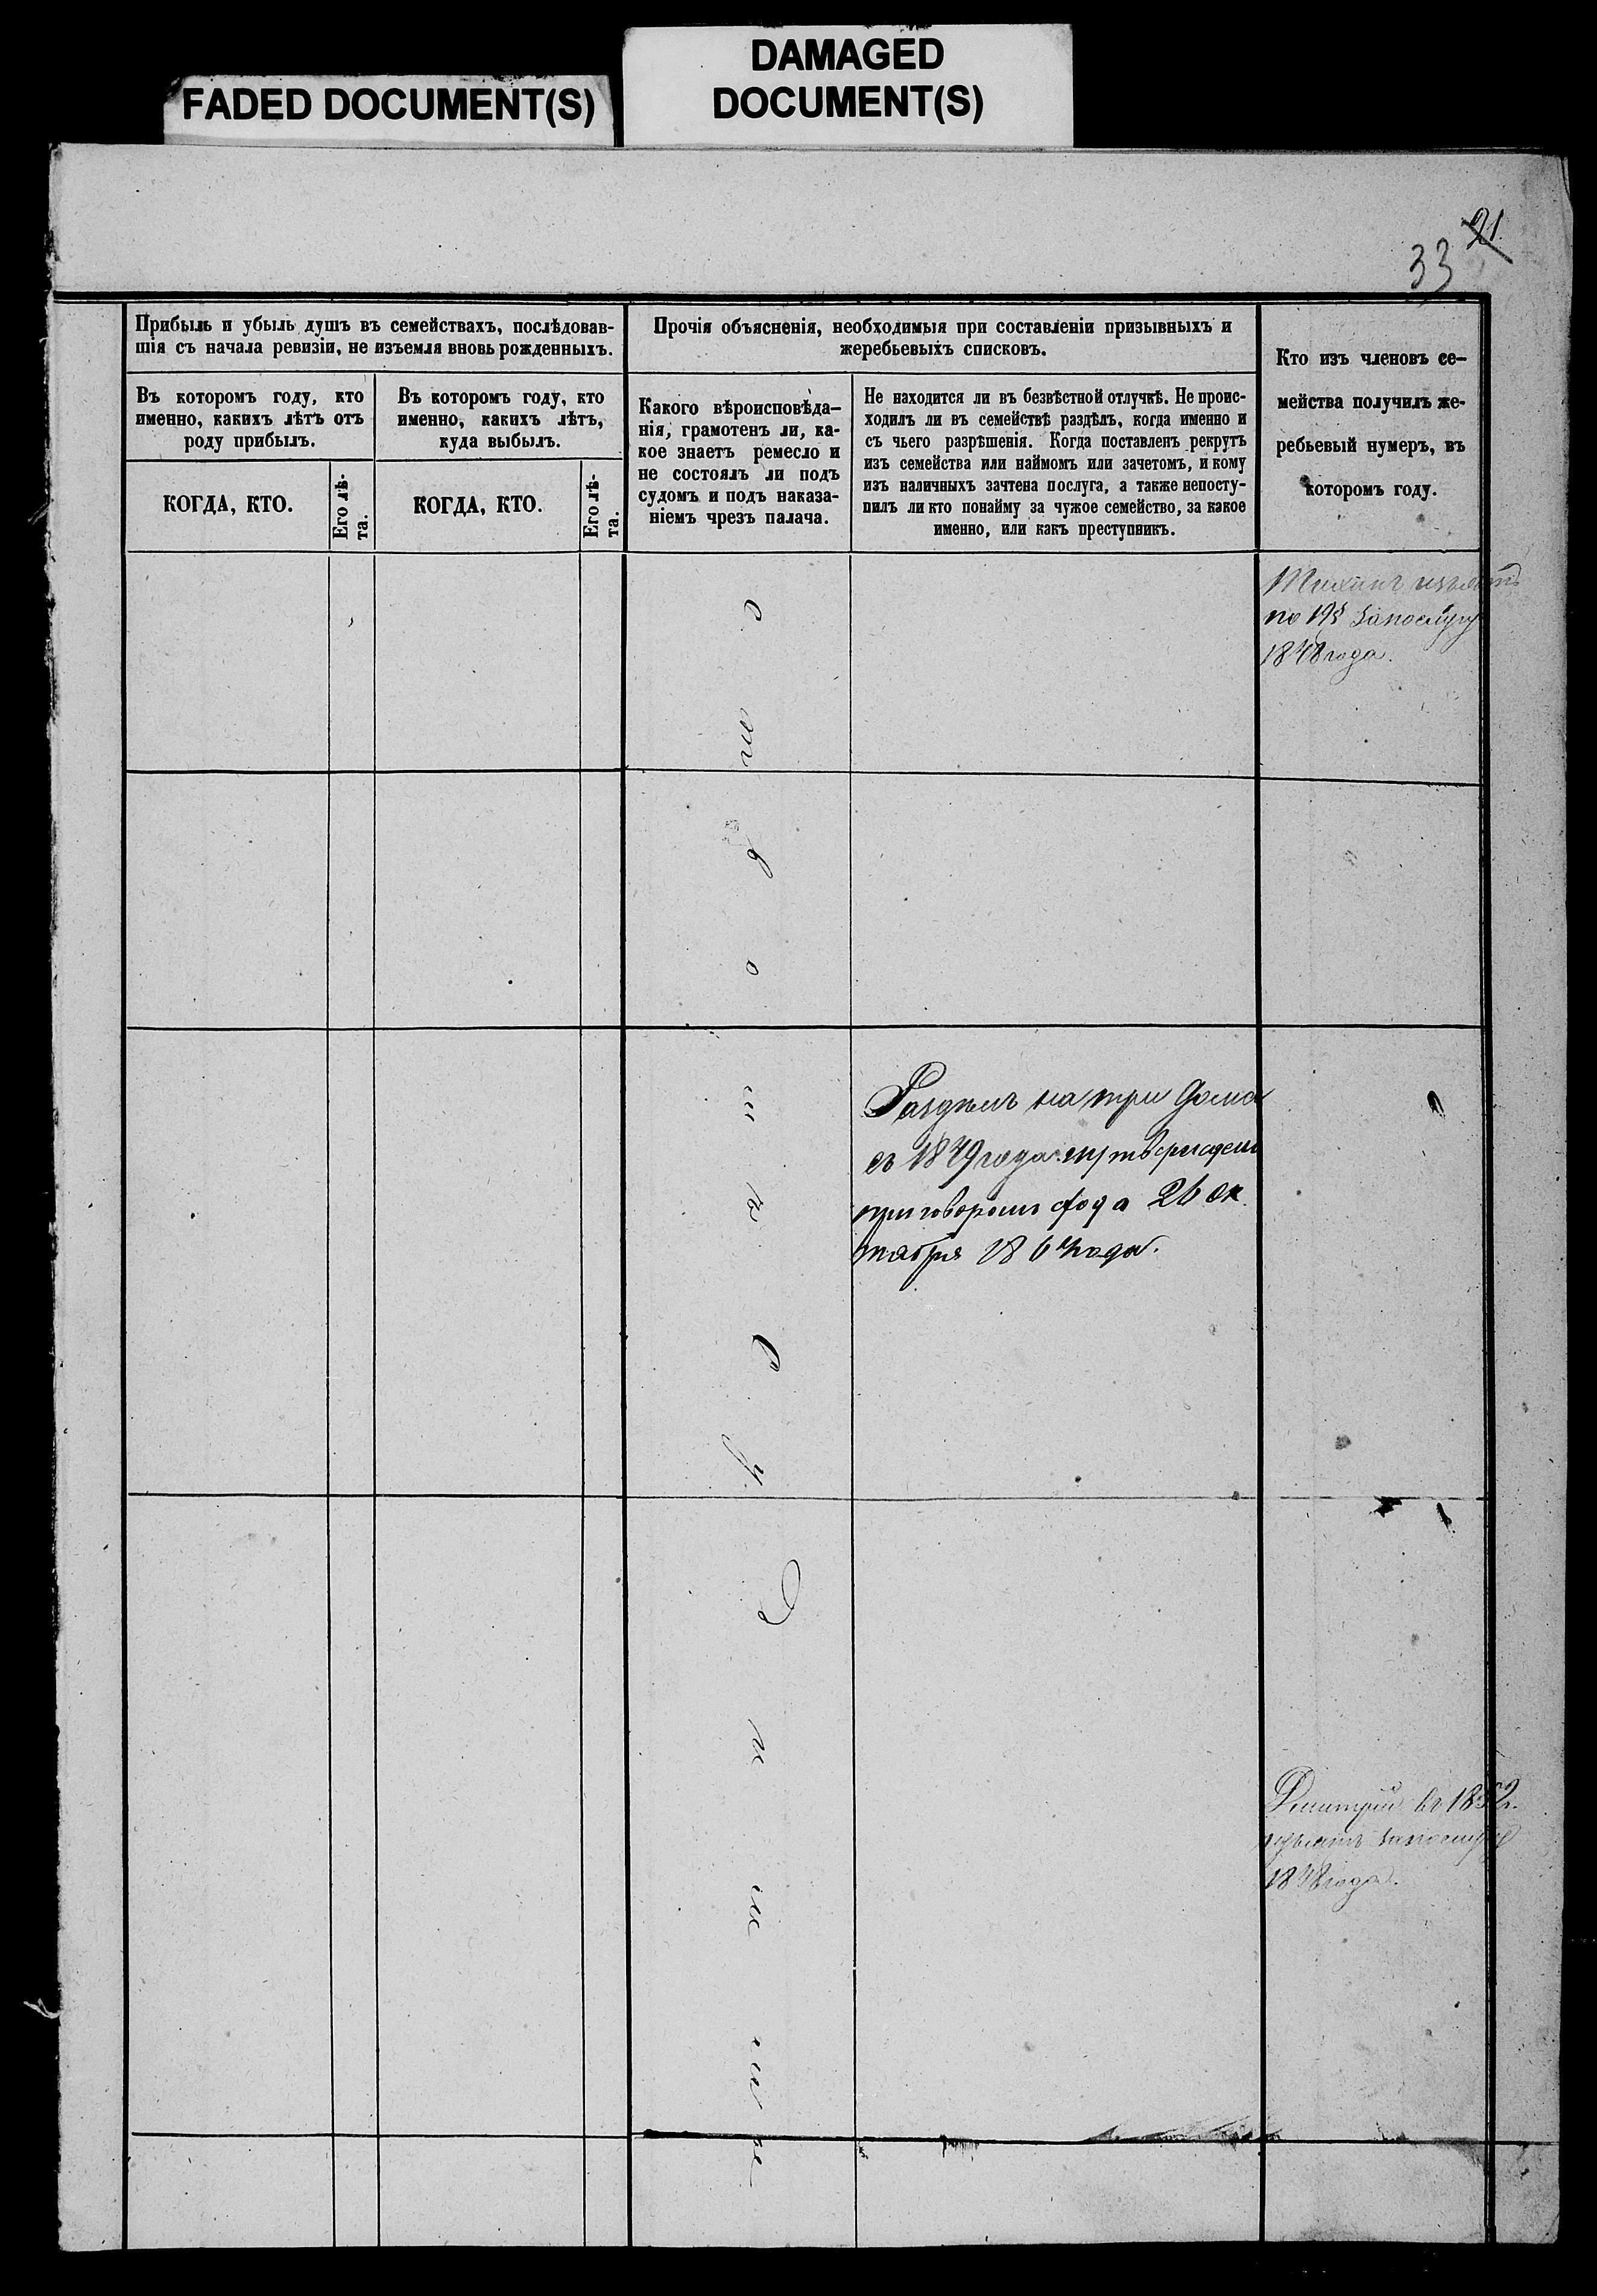 FADED DOCUMENT(S)
DAMAGED
DOCUMENT(S)
21.
33
Прибыль и убыль душъ въ семействахъ, послѣдовав-
шія съ начала ревизіи, не изъемля вновь рожденныхъ.
Въ которомъ году, кто
именно, какихъ лѣтъ отъ
роду прибылъ.
КОГДА, КТО.
Его лѣ-
та.
Въ которомъ году, кто
именно, какихъ лѣтъ,
куда выбылъ.
КОГДА, КТО.
Его лѣ-
та.
Прочія объясненія, необходимыя при составленіи призывныхъ и
жеребьевыхъ списковъ.
Какого вѣроисповѣда-
нія, грамотенъ ли, ка-
кое знаетъ ремесло и
не состоялъ ли подъ
судомъ и подъ наказа-
ніемъ чрезъ палача.
Не находится ли въ безвѣстной отлучкѣ. Не проис-
ходилъ ли въ семействѣ раздѣлъ, когда именно и
съ чьего разрѣшенія. Когда поставленъ рекрутъ
изъ семейства или наймомъ или зачетомъ, и кому
изъ наличныхъ зачтена послуга, а также непосту-
пилъ ли кто понайму за чужое семейство, за какое
именно, или какъ преступникъ.
Кто изъ членовъ се-
мейства получилъ же-
ребьевый нумеръ, въ
которомъ году.
изъятъ
по запослугу
1848 года.
Раздѣлъ на три дома
съ 1849 года утвержденъ
приговоромъ схода 26 ок
тября года.
Дмитрій въ 1852.
изъятъ запослугу
1848 года.